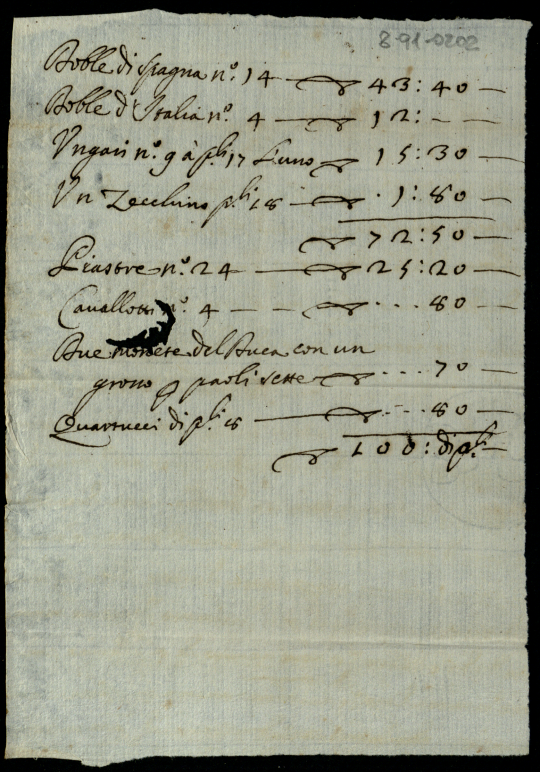 8-91-0202
Doble di spagna n.º 14 — 43:40 —
Doble d'Italia n.º 4 — 12:— —
Vngari n.º 9 à pli 17 l'uno — 15:30 —
Vn Zecchino pli 18 — .1:80 —
72:50 —
Piastre n.º 24 — 25:20 —
Cavallotti n.º 4 — — ...80 —
Due monete del Duca con un
grosso p paoli sette — ...70 —
Quartucci di pli 8 — ...80 —
100: di pli —